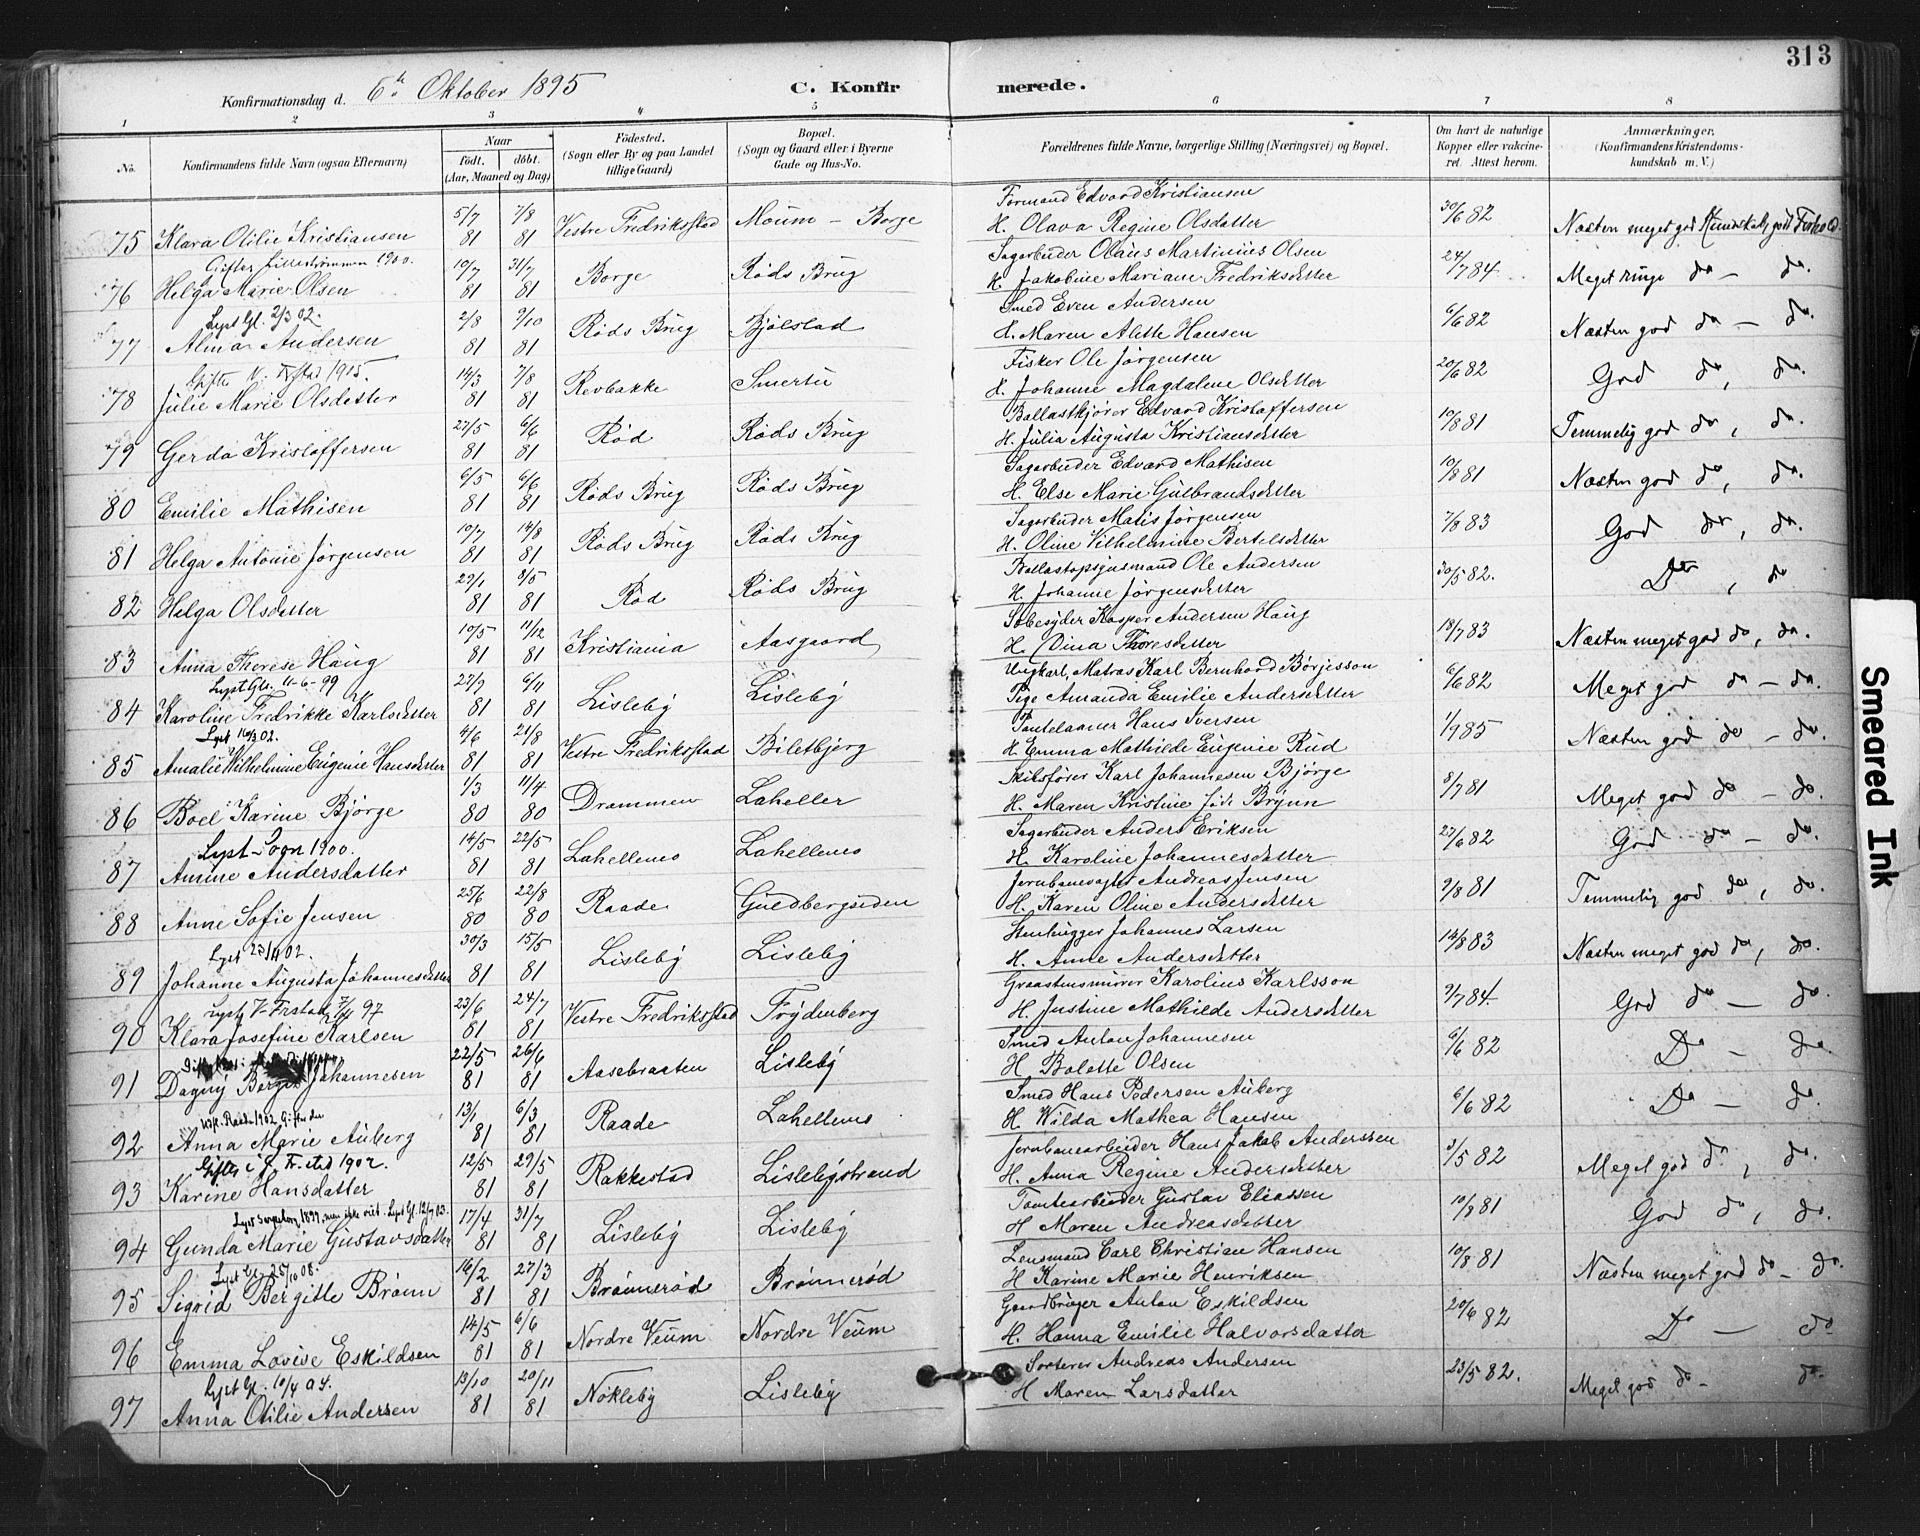 313
Konfirmationsdag d. 6te Oktober 1895 C. Konfirmerede.
1 2 3 4 5 6 7 8
No. Konfirmandens fulde Navn (ogsaa Efternavn) Naar Födt. döbt. (Aar, Maaned og Dag) Födested. (Sogn eller By og paa Landet tillige Gaard) Bopæl. (Sogn og Gaard eller i Byerne Gade og Hus-No. Forældrenes fulde Navne, borgerlige Stilling (Næringsvei) og Bopæl. Om havt de naturlige Kopper eller vakcineret. Attest herom. Anmærkninger. (Konfirmandens Kristendomskundskab m. V.)
75 Klara Otilie Kristiansen 5/7 81 7/8 81 Vestre Fredriksstad Moum - Borge Formand Edvard Kristiansen H. Olava Regine Olsdatter 30/6 82 Næsten meget god Kundskab, godt Forhold.
Gifter Lillestrømmen 1900.
76 Helga Marie Olsen 10/7 81 31/7 81 Borge Røds Brug Sagarbuder Olaus Martinius Olsen H. Jakobine Mariane Fredriksdatter 24/7 84 Meget ringe do - do.
Lyst Gl. 2/3 02.
77 Alma Andersen 2/8 81 9/10 81 Røds Brug Bjølstad Smed Even Andersen H. Maren Alette Hansen 6/6 82 Næsten god do - do.
Gifter V. Frstad 1915.
78 Julie Marie Olsdatter 14/3 81 7/8 81 Revbakke Smertu Fisker Ole Jørgensen H. Johanne Magdalene Olsdatter 20/6 82 God do, do.
79 Gerda Kristoffersen 27/5 81 6/6 81 Rød Røds Brug Ballastkjører Edvard Kristoffersen H. Julia Augusta Kristiansdatter 10/8 81 Temmelig god do, do.
80 Emilie Mathisen 6/5 81 6/6 81 Røds Brug Røds Brug Sagarbuder Edvard Mathisen H. Else Marie Gulbrandsdatter 10/8 81 Næsten god do, do.
81 Helga Antonie Jørgensen 10/7 81 14/8 81 Røds Brug Røds Brug Sagarbuder Matis Jørgensen H. Oline Vilhelmine Bertelsdatter 7/8 83 God do, do.
82 Helga Olsdatter 29/1 81 8/5 81 Rød Røds Brug Ballastopsynsmand Ole Andersen H. Johanne Jørgensdatter 30/5 82. Do, do
83 Anna Therese Haug 10/5 81 11/12 81 Kristiania Aasgaard Købesyder Kasper Andersen Haug H. Dina Thoresdatter 18/7 83 Næsten meget god do, do.
Lyst Gl. 11-6-99
84 Karoline Fredrikke Karlsdatter 27/9 81 6/11 81 Lisleby Lisleby Ungkarl, Matros Karl Bernhard Börjesson Pige Amanda Emilie Andersdatter 6/6 82 Meget god do - do.
85 Amalie Wilhelmine Eugenie Hansdatter 4/6 81 21/8 81 Vestre Fredriksstad Biletbjerg Pantelaaner Hans Iversen H. Emma Mathilde Eugenie Rud 1/7 85 Næsten god do - do.
86 Boel Karine Bjørge 1/3 80 11/4 80 Drammen Laheller Skibsfører Karl Johannesen Bjørge H. Maren Kristine født Brynn 8/7 81 Meget god do - do.
Lyst - Sogn 1900.
87 Amine Andersdatter 14/5 81 22/5 81 Lahellemo Lahellemo Sagarbuder Anders Eriksen H. Karoline Johannesdatter 27/6 82 God do - do.
88 Anne Sofie Jensen 25/6 80 22/8 80 Raade Guldbergsiden Jernbanevagter Andreas Jensen H. Karen Oline Andersdatter 9/8 81 Temmelig god do, do.
89 Johanne Augusta Johannesdatter 30/3 81 15/5 81 Lisleby Lisleby Stenhugger Johannes Larsen H. Anne Andersdatter 14/8 83 Næsten meget god do, do.
90 Klara Josefine Karlsen 23/6 81 24/7 81 Vestre Fredriksstad Frydenberg Graastensmurer Karolius Karlsson H. Justine Mathilde Andersdatter 9/7 84. God do - do.
91 Dagny Johannesen 22/5 81 26/6 81 Aasebraaten Lisleby Smed Anton Johannesen H. Bolette Olsen 6/6 82 Do - do.
92 Anna Marie Auberg 13/1 81 6/3 81 Raade Lahellemo Smed Hans Pedersen Auberg H. Wilda Mathea Hansen 6/6 82 Do - do.
Gifter i G. Fr.stad 1902.
93 Karine Hansdatter 12/5 81 29/5 81 Rakkestad Lislebystrand Jernbanearbeider Hans Jakob Anderssen H. Anna Regine Andersdatter 3/5 82 Meget god do, do.
94 Gunda Marie Gustavsdatter 17/4 81 31/7 81 Lisleby Lisleby Tomtearbuder Gustav Eliassen H Maren Andreasdatter 10/8 81 God do, do.
Lyst Gl. 25/10 08.
95 Sigrid Bergitte Brønn 16/2 81 27/3 81 Brønnerød Brønnerød Lensmand Carl Christian Hansen H Karine Marie Henriksen 10/8 81 Næsten meget god do - do.
96 Emma Lovise Eskildsen 14/5 81 6/6 81 Nordre Veum Nordre Veum Gaardbruger Anton Eskildsen H. Hanna Emilie Halvorsdatter 20/6 82 Do - do
Lyst Gl. 10/4 04.
97 Anna Otilie Andersen 13/10 81 20/11 81 Nøkleby Lisleby Sorterer Andreas Andersen H Maren Larsdatter 23/5 82. Meget god do - do.
Smeared Ink